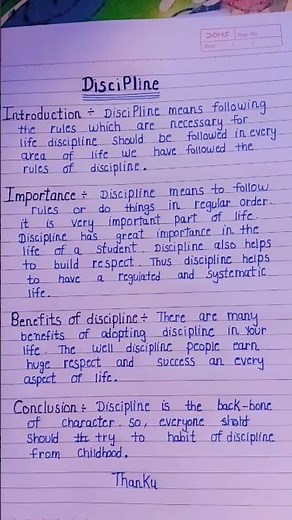 Page No.
Date
DisciPline
Introduction ÷ DisciPline means following
the rules which are necessary for
life discipline should be followed in every
area of life we have followed the
rules of discipline.
Importance ÷ Discipline means to follow
rules or do things in regular order.
it is very important part of life.
Discipline has great importance in the
life of a student. Discipline also helps
to build respect. Thus discipline helps
to have a regulated and systematic
life.
Benefits of discipline ÷ There are many
benefits of adopting discipline in your
life. The well discipline people earn
huge respect and success an every
aspect of life.
Conclusion ÷ Discipline is the back-bone
of character. so, everyone
should try to habit of discipline
from childhood.
Thanku